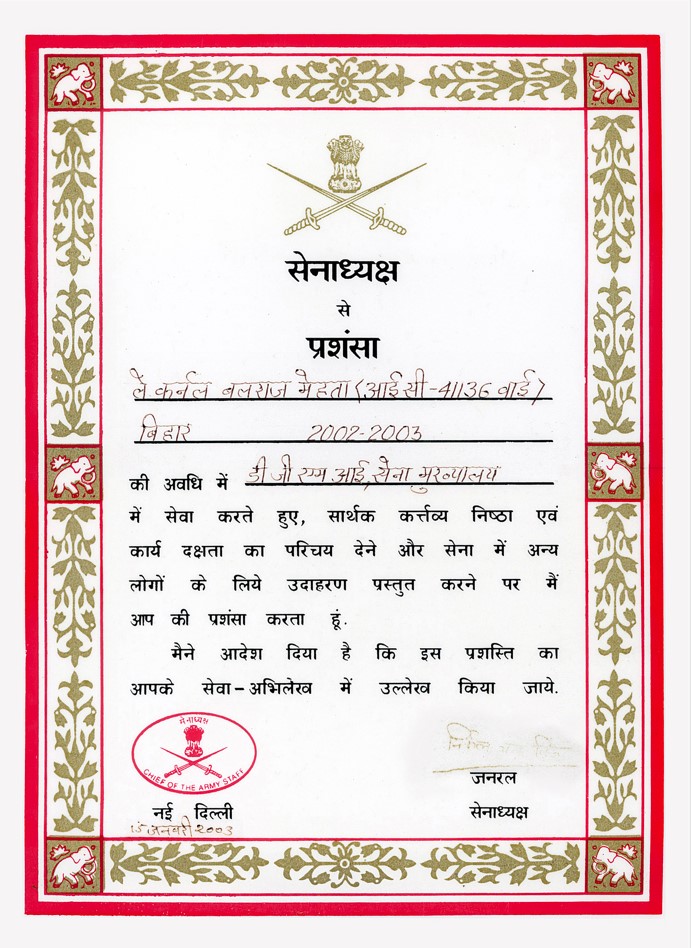 सेनाध्यक्ष
से
प्रशंसा
ले कर्नल बलराज मेहता (आई सी-41136 वाई)
बिहार 2002-2003
की अवधि में डी जी एम आई, सेना मुख्यालय
में सेवा करते हुए, सार्थक कर्त्तव्य निष्ठा एवं
कार्य दक्षता का परिचय देने और सेना में अन्य
लोगों के लिये उदाहरण प्रस्तुत करने पर मैं
आप की प्रशंसा करता हूं.
मैने आदेश दिया है कि इस प्रशस्ति का
आपके सेवा-अभिलेख में उल्लेख किया जाये.
सेनाध्यक्ष
CHIEF OF THE ARMY STAFF
जनरल
नई दिल्ली सेनाध्यक्ष
15 जनवरी 2003